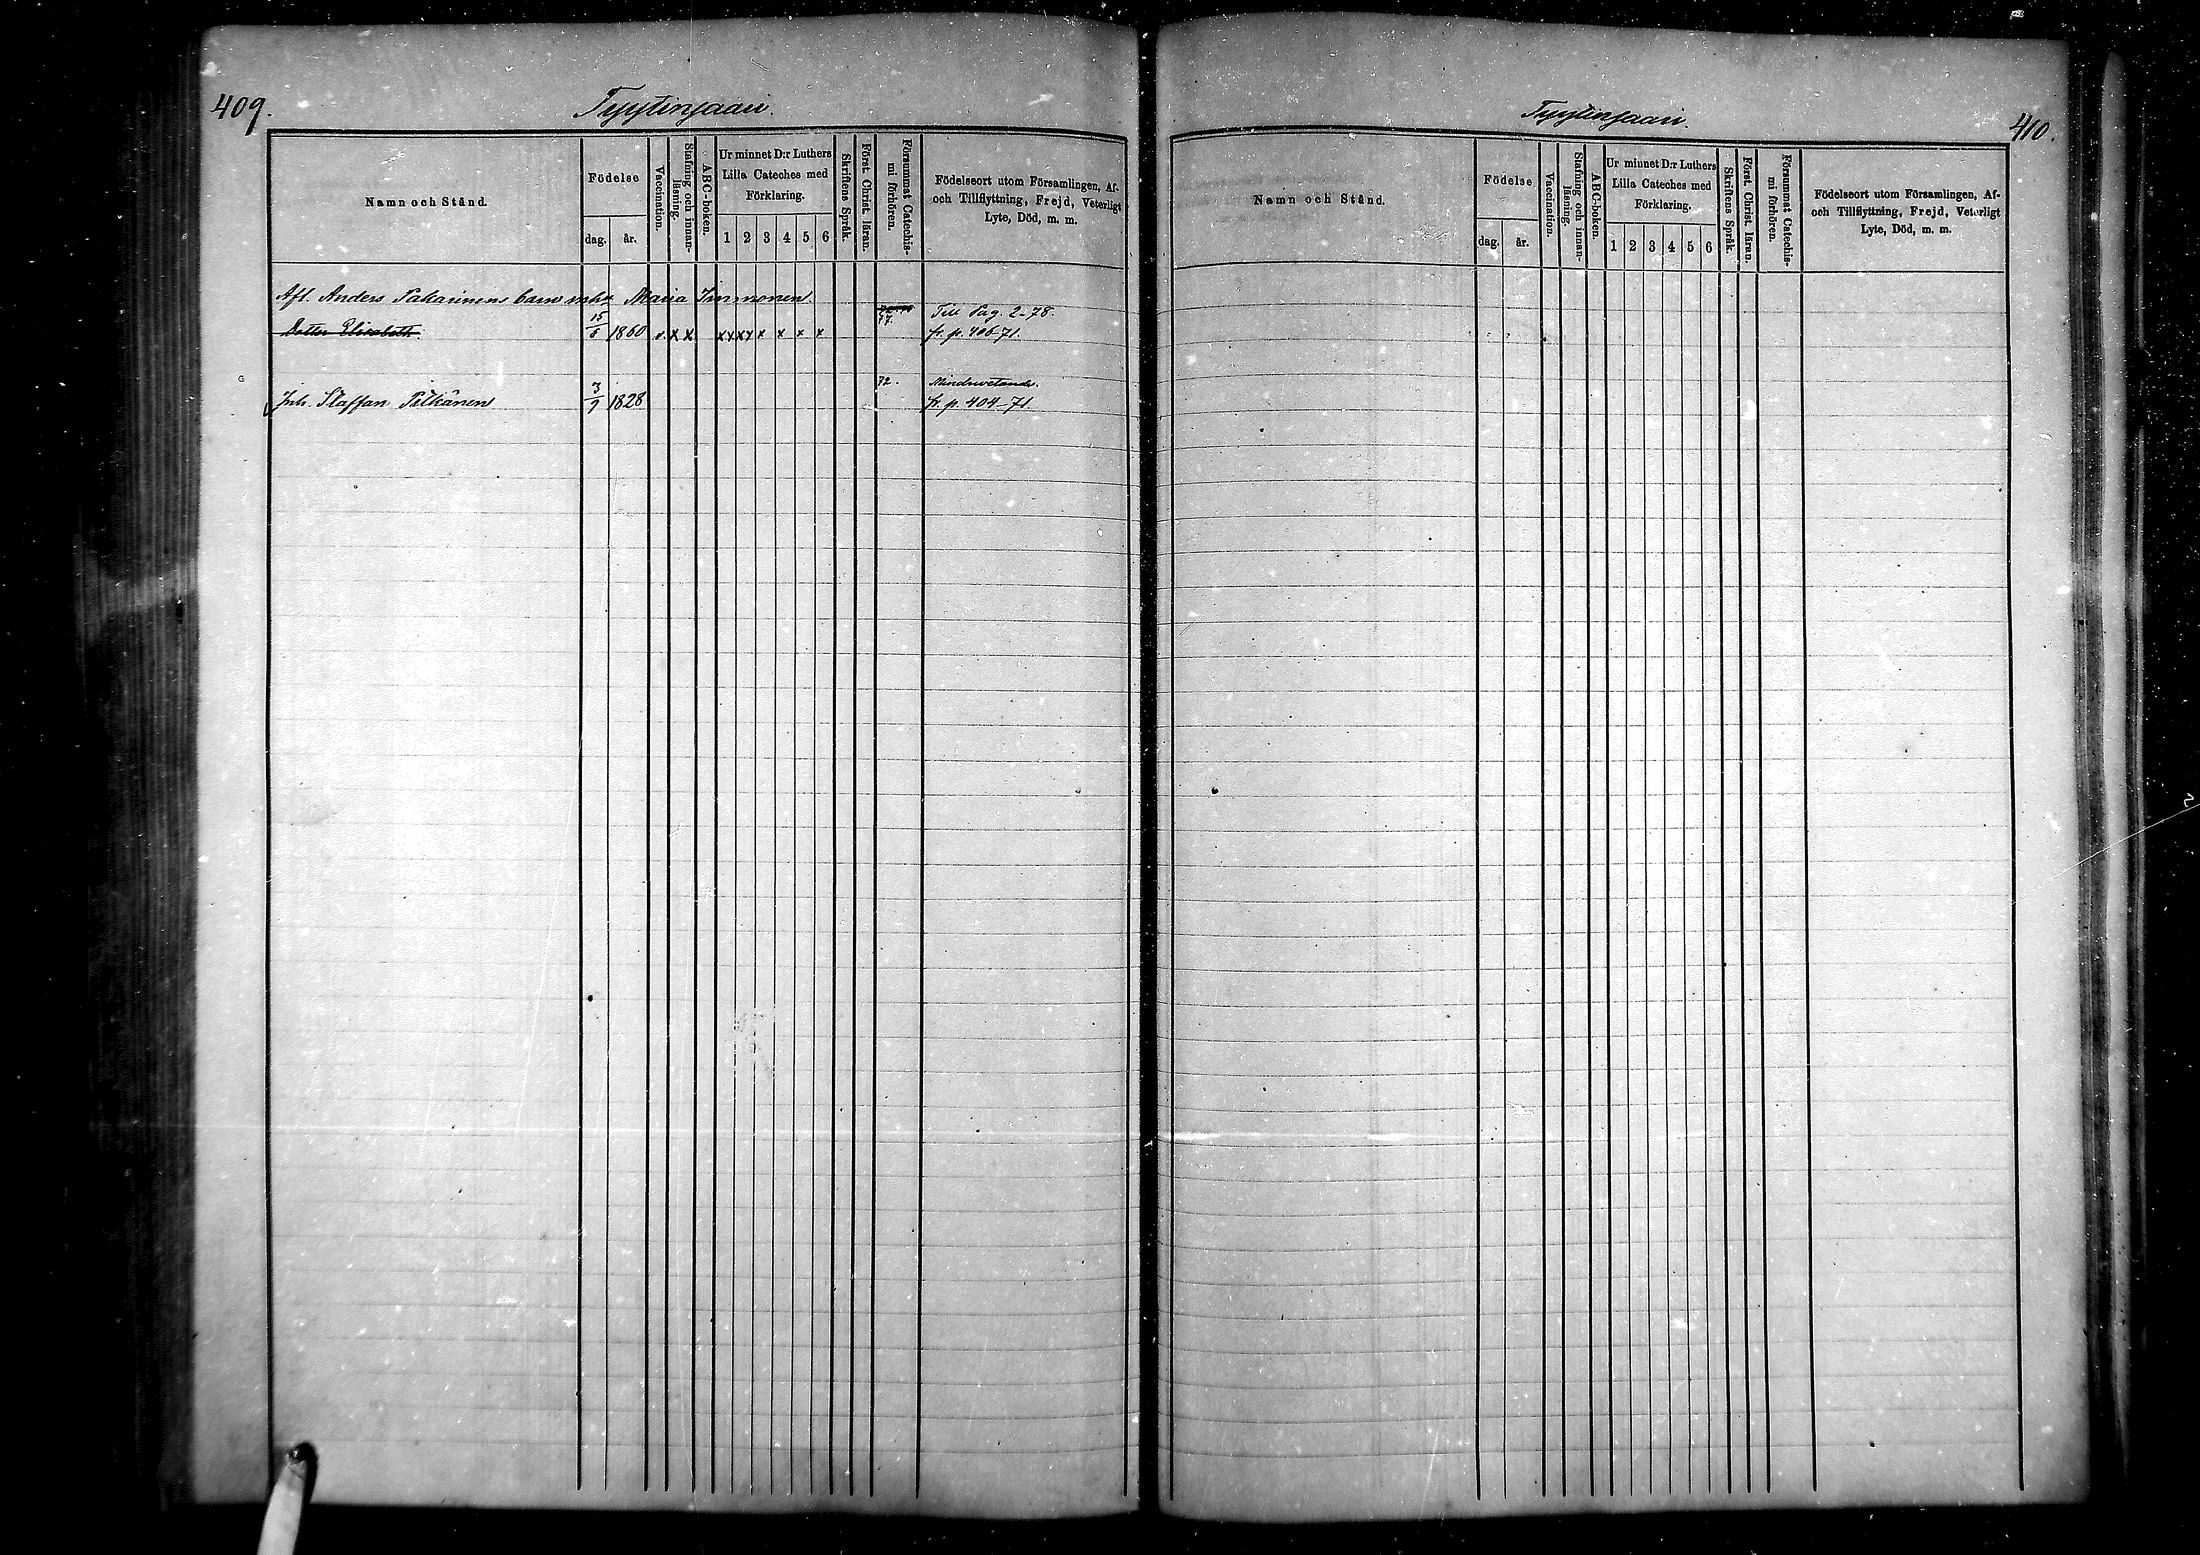 409.
Tyytinsaari.
Namn och Stånd.
Födelse
dag.
år.
Vaccination.
Stafning och innan-
läsning.
ABC-boken.
Ur minnet D:r Luthers
Lilla Cateches med
Förklaring.
1 2 3 4 5 6
Skriftens Språk.
Först. Christ. läran.
Försummat Catechis-
mi förhören.
Födelseort utom Församlingen, Af-
och Tillflyttning, Frejd, Veterligt
Lyte, Död, m. m.
Afl. Anders Pakarinens barn m hu Maria Immonen
Dotter Elisabeth. 15/6 1860 v. x x xx xy x x x x 77. Till Pag. 2-78.
fr. p. 406-71.
Inh. Staffan Pitkänen 3/9 1828 72. Mindrevetande.
fr. p. 404-71.
Tyytinsaari.
410.
Namn och Stånd.
Födelse
dag. år.
Vaccination.
Stafning och innan-
läsning.
ABC-boken.
Ur minnet D:r Luthers
Lilla Cateches med
Förklaring.
1 2 3 4 5 6
Skriftens Språk.
Först. Christ. läran.
Försummat Catechis-
mi förhören.
Födelseort utom Församlingen, Af-
och Tillflyttning, Frejd, Veterligt
Lyte, Död, m. m.